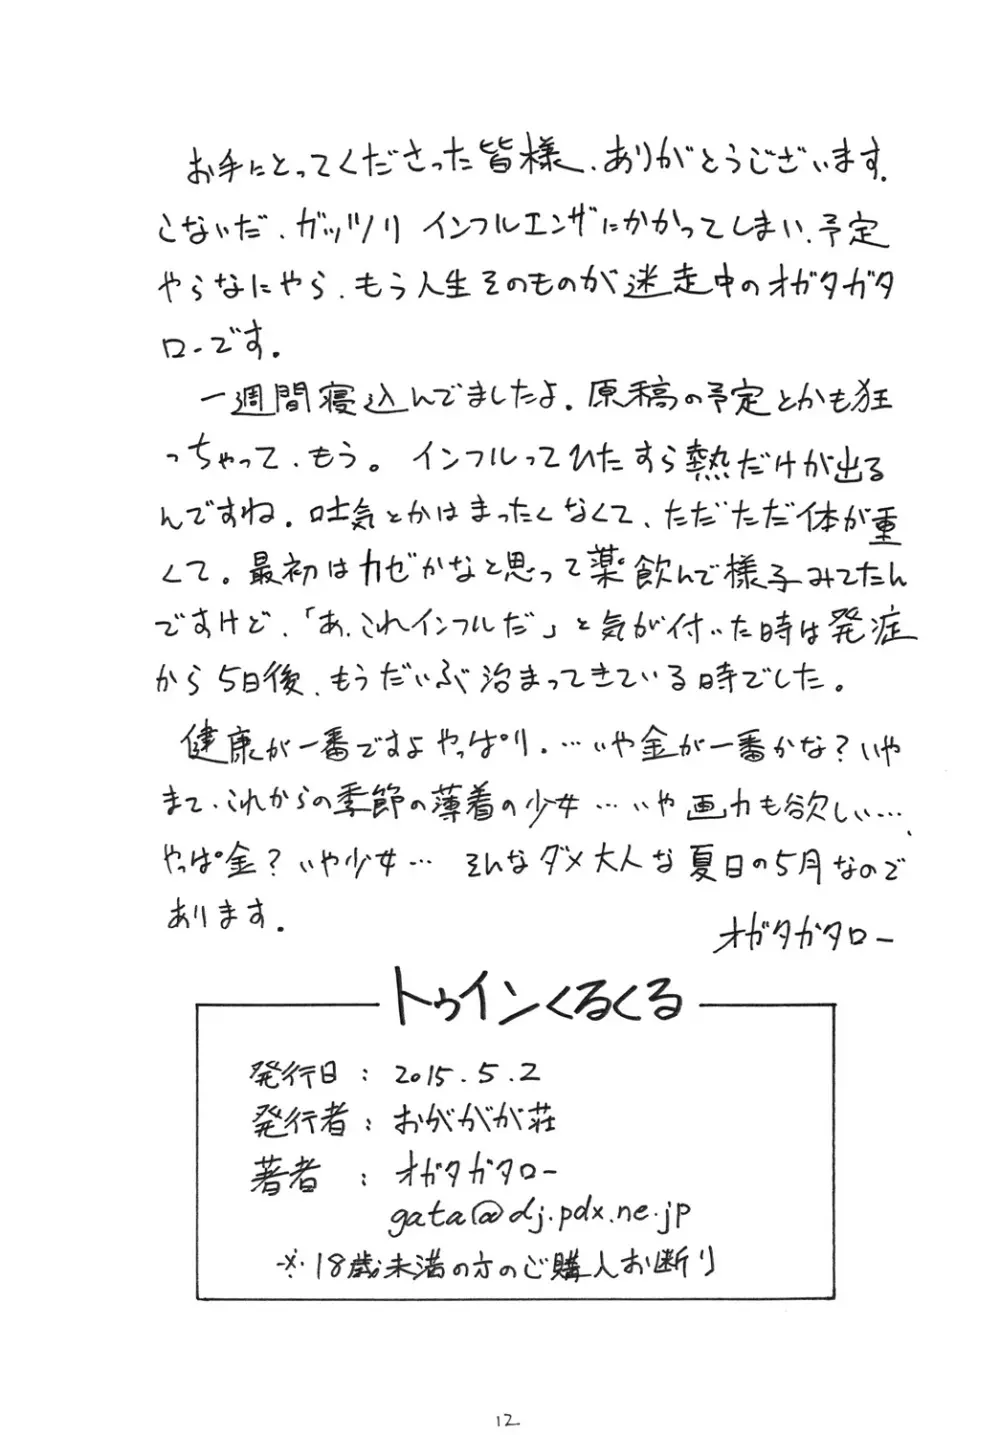 お手にとってくださった皆様、ありがとうございます。
こないだ、ガッツリインフルエンザにかかってしまい、予定
やらなにやら、もう人生そのものが迷走中のオガタガタ
ローです。
一週間寝込んでましたよ。原稿の予定とかも狂
っちゃって、もう。インフルってひたすら熱だけが出る
んですね。吐気とかはまったくなくて、ただただ体が重
くて。最初はカゼかなと思って薬飲んで様子みてたん
ですけど、「あ、これインフルだ」と気が付いた時は発症
から5日後、もうだいぶ治まってきている時でした。
健康が一番ですよやっぱり。…いや金が一番かな?いや
まて、これからの季節の薄着の少女…いや画力も欲しい…、
やっぱ金?いや少女… そんなダメ大人な夏日の5月なので
あります。
オガタガタロー
トゥインくるくる
発行日:2015.5.2
発行者:おがががが荘
著者:オガタガタロー
gata@dj.pdx.ne.jp
※18歳未満の方のご購入お断り
12